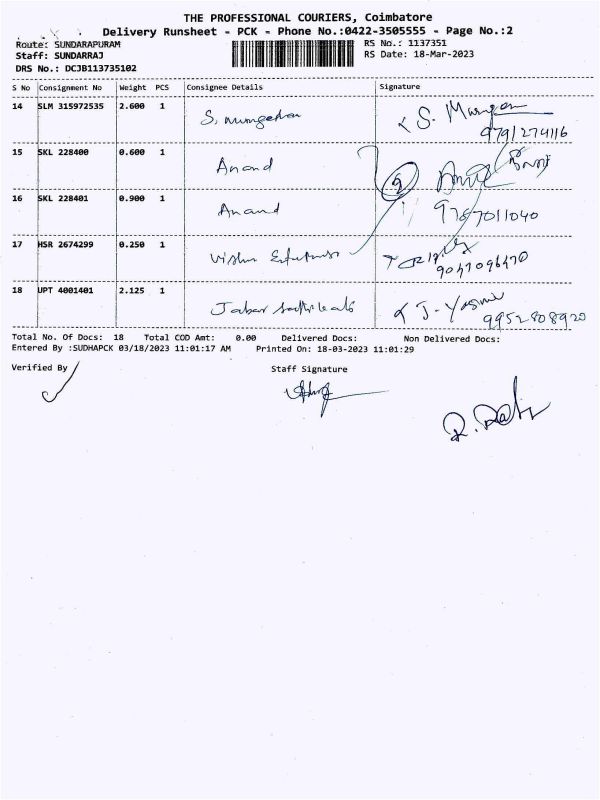 THE PROFESSIONAL COURIERS, Coimbatore
Delivery Runsheet - PCK - Phone No.:0422-3505555 - Page No.:2
Route: SUNDARAPURAM
RS No.: 1137351
Staff: SUNDARRAJ
RS Date: 18-Mar-2023
DRS No.: DCJB113735102
S No Consignment No Weight PCS Consignee Details Signature
14 SLM 315972535 2.600 1 S. murugedran S. Murugan
9791274116
15 SKL 228400 0.600 1 Anand
16 SKL 228401 0.900 1 Anand 9787011040
17 HSR 2674299 0.250 1 Vishnu Enterprises
9047096470
18 UPT 4001401 2.125 1 Jabar J. Yasmi
9952808920
Total No. Of Docs: 18 Total COD Amt: 0.00 Delivered Docs: Non Delivered Docs:
Entered By :SUDHAPCK 03/18/2023 11:01:17 AM Printed On: 18-03-2023 11:01:29
Verified By Staff Signature